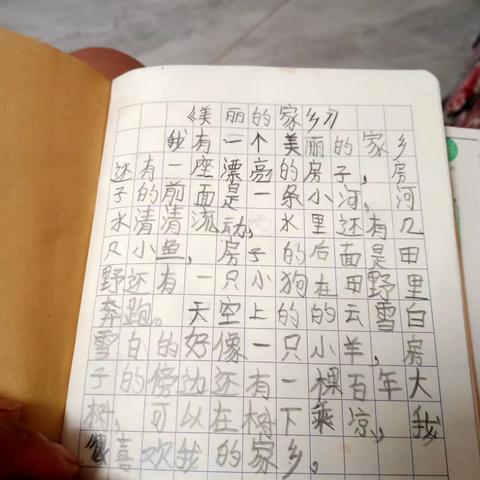 《美丽的家乡》
我有一个美丽的家乡
还有一座漂亮的房子，房
子的前面是一条小河，河
水清清流动，水里还有几
只小鱼，房子的后面是田
野还有一只小狗在田野里
奔跑。天空上的的云雪白
雪白的好像一只小羊，房
子的傍边还有一棵百年大
树，可以在树下乘凉，我
很喜欢我的家乡。